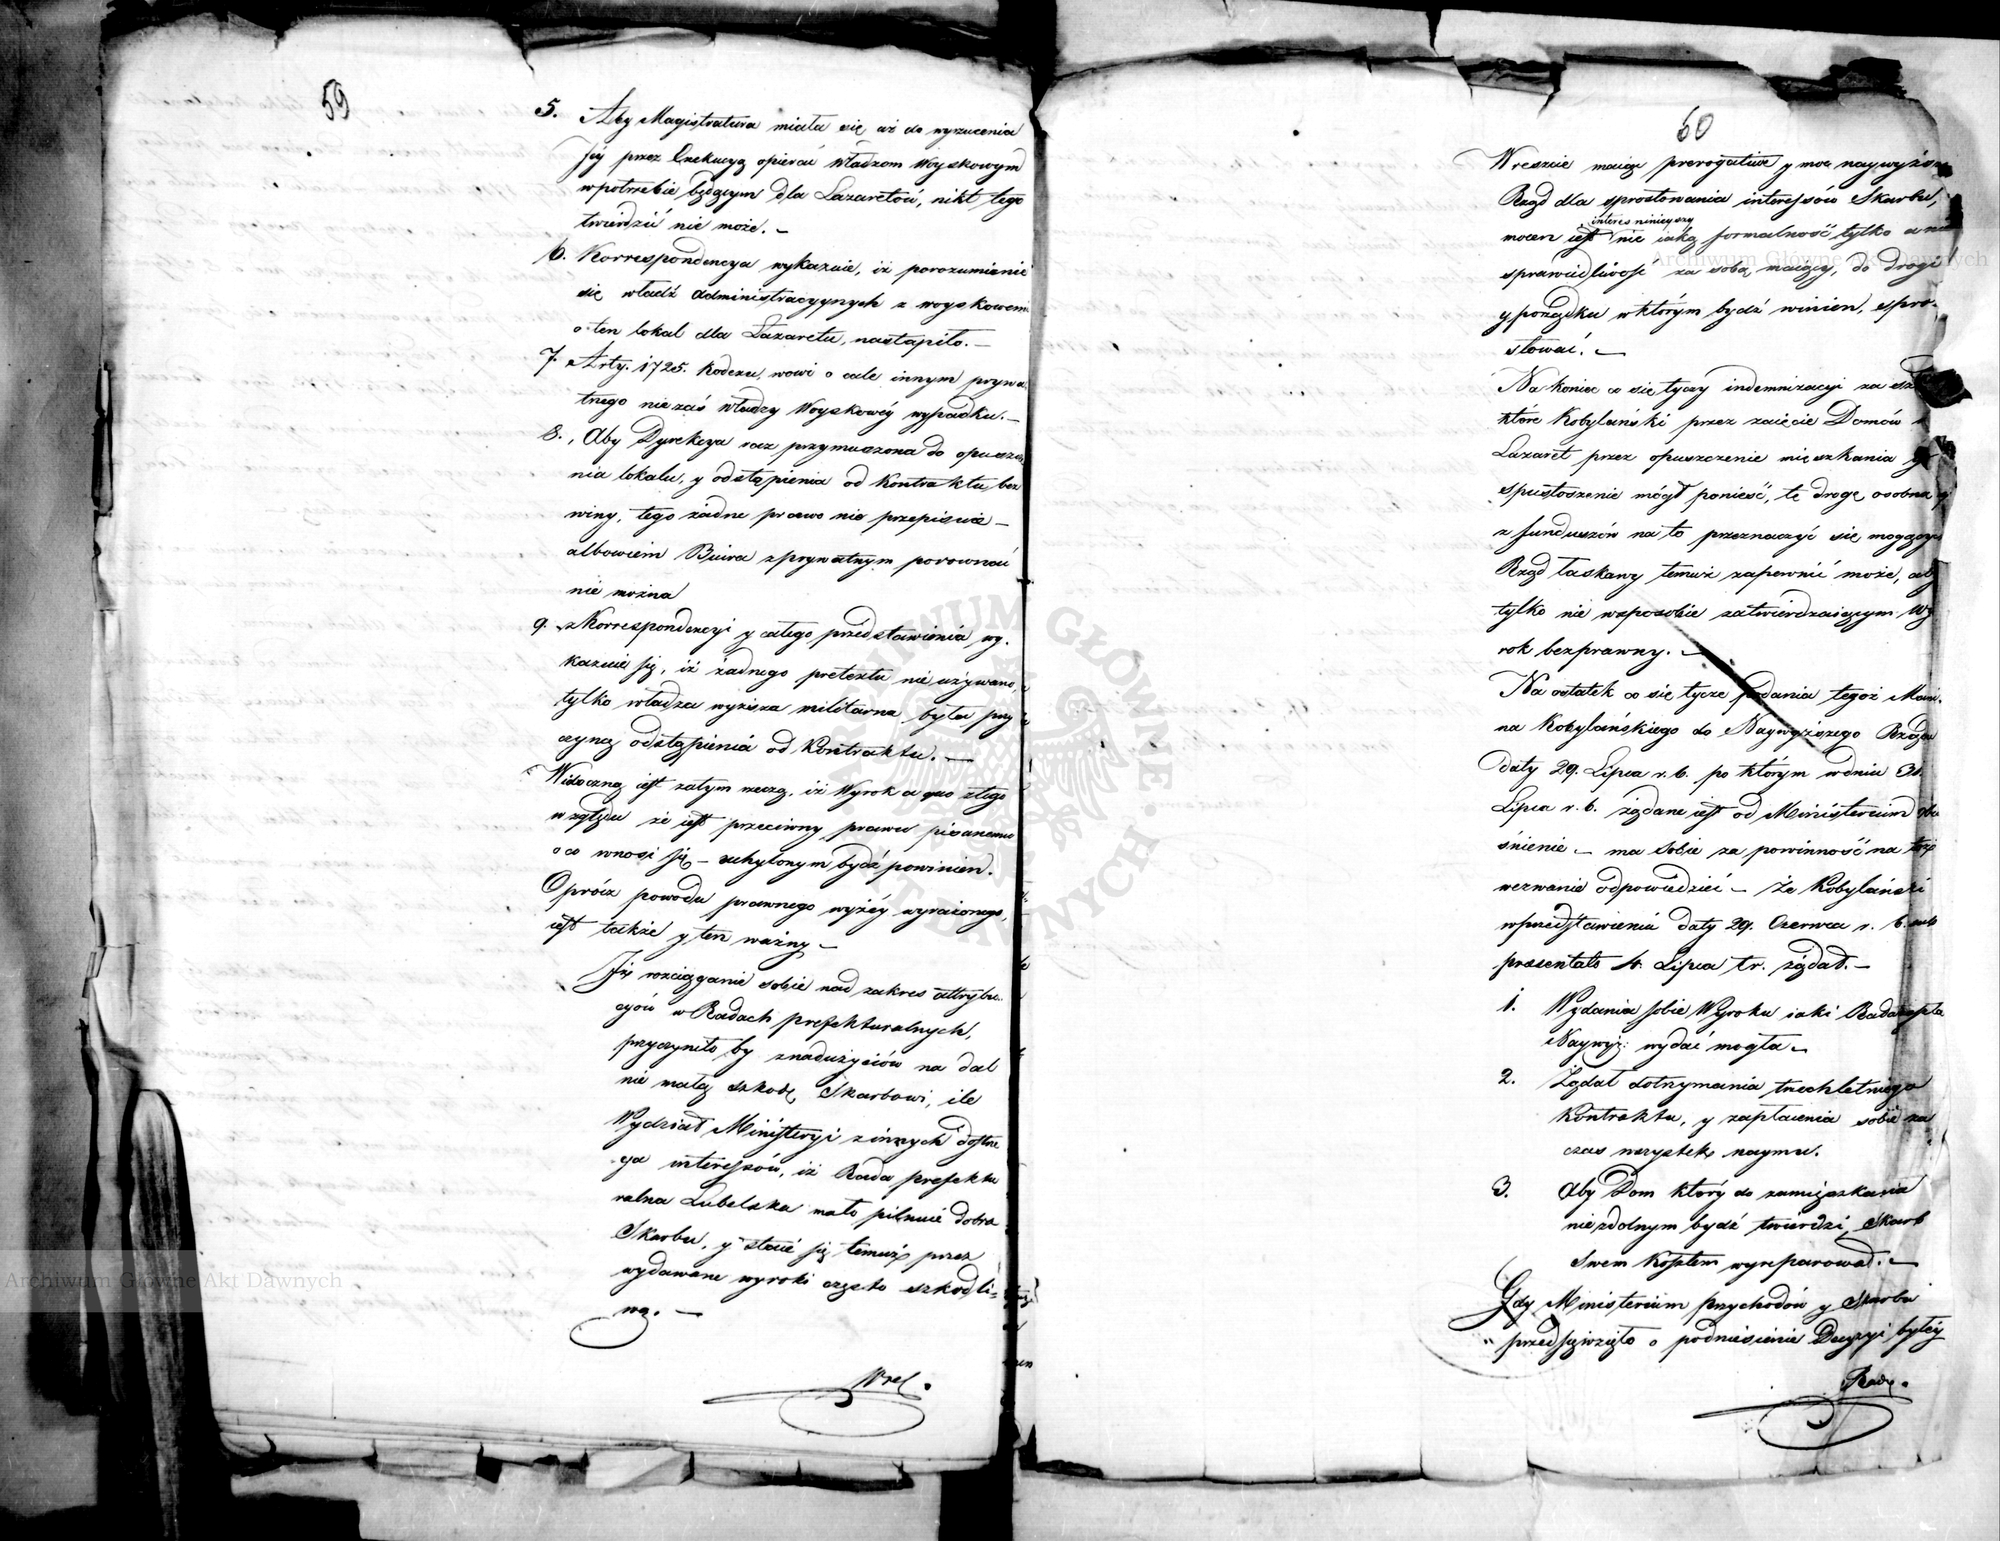 59
5. Aby Magistratura miała się aż do wyrzucenia
Jéy przez Exekucyą opierać władzom Woyskowym
w potrzebie będącym dla Lazaretów, nikt tego
twierdzić nie może. –
6. Korrespondencya wykazuie, iż porozumienie
się władz administracyynych z woyskowemi
o ten lokal dla Lazaretu, nastąpiło. –
7. Arty. 1725. Kodexu, mowi o cale innym prywa-
tnego nie zaś władzy Woyskowéy wypadku. –
8. Aby Dyrekcya raz przymuszona do opuszcze
nia lokalu, y odstąpienia od Kontraktu, bez
winy, tego żadne prawo nie przepisuie –
albowiem Biura z prywatnym porownać
nie można
9. z Korrespondencyi y całego przedstawienia wy-
kazuie się, iż żadnego pretextu nie używano,
tylko władza wyższa militarna była przy
czyną odstąpienia od Kontraktu. –
Widoczną iest zatym rzeczą, iż Wyrok a quo z tego
względu że iest przeciwny prawu pisanemu
o co wnosi się – uchylonym bydź powinien.
Oprócz powodu prawnego wyżéy wyrażonego,
iest także y ten ważny –
Iż rozciąganie sobie nad zakres attrybu-
cyów w Radach prefekturalnych,
przyczyniło by z nadużyciów na dal
nie małą szkodę Skarbowi, ile
Wydział Ministeryi z innych dostrze
ga interessów, iż Rada prefektu
ralna Lubelska mało pilnuie dobra
Skarbu, y staie się temuż przez
wydawane wyroki często szkodli-
wą. –
Wresz.
60
Wreszcie maiąc prerogatiwę y moc naywyższ
Rząd dla sprostowania interessów Skarbu,
mocen iest interes ninieyszy nie iaką formalność tylko a n
sprawiedliwość za sobą maiący, do drogi
y porządku w którym bydź winien, spro-
stować. –
Na koniec co się tyczy indemnizacyi za szk
które Kobylański przez zaięcie Domów n
Lazaret przez opuszczenie mieszkania y
spustoszenie mógł ponieść, tę drogę osobną
z funduszów na to przeznaczyć się mogących
Rząd łaskawy temuż zapewnić może, aby
tylko nie w sposobie zatwierdzaiącym Wy
rok bezprawny. –
Na ostatek co się tycze podania tegoż Mar-
na Kobylańskiego do Naywyższego Rządu
daty 29. Lipca r. b. po którym w dniu 30.
Lipca r. b. żądane iest od Ministerium obia
śnienie – ma sobie za powinność na toż
wezwanie odpowiedzieć – że Kobylański
w przedstawieniu daty 29. Czerwca r. b. sub
praesentato 4. Lipca t.r. żądał. –
1. Wydania sobie Wyroku iaki Rada
Naywyż: wydać mogła –
2. Żądał dotrzymania trzechletniego
Kontraktu, y zapłacenia sobie za
czas wszystek naymu.
3. Aby Dom który do zamieszkania
niezdolnym bydź twierdzi, Skarb
swem kosztem wyreparował. –
Gdy Ministerium przychodów y Skarbu
przedsięwzięło o podniesienie Decyzyi byłéy
Rady.
Archiwum Główne Akt Dawnych
Archiwum Główne Akt Dawnych
ARCHIWUM GŁÓWNE AKT DAWNYCH